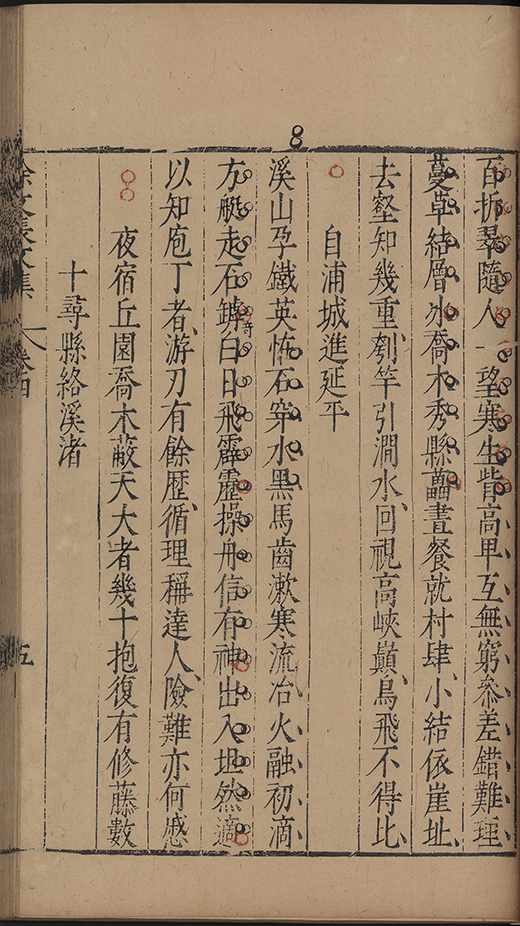 8
百折翠隨人一望寒生眥高卑互無窮參差錯難理
蔓草結層冰喬木秀縣藟晝餐就村肆小結依崖址
去壑知幾重刳竿引澗水回視高峽巔鳥飛不得比
自浦城進延平
溪山孕鐵英怖石穿水黑馬齒漱寒流冶火融初滴
方艇走石罅白日飛霹靂操舟信有神出入坦然適
以知庖丁者游刃有餘歷循理稱達人險難亦何慼
夜宿丘園喬木蔽天大者幾十抱復有修藤數
十尋縣絡溪渚
徐文長文集 卷四
五